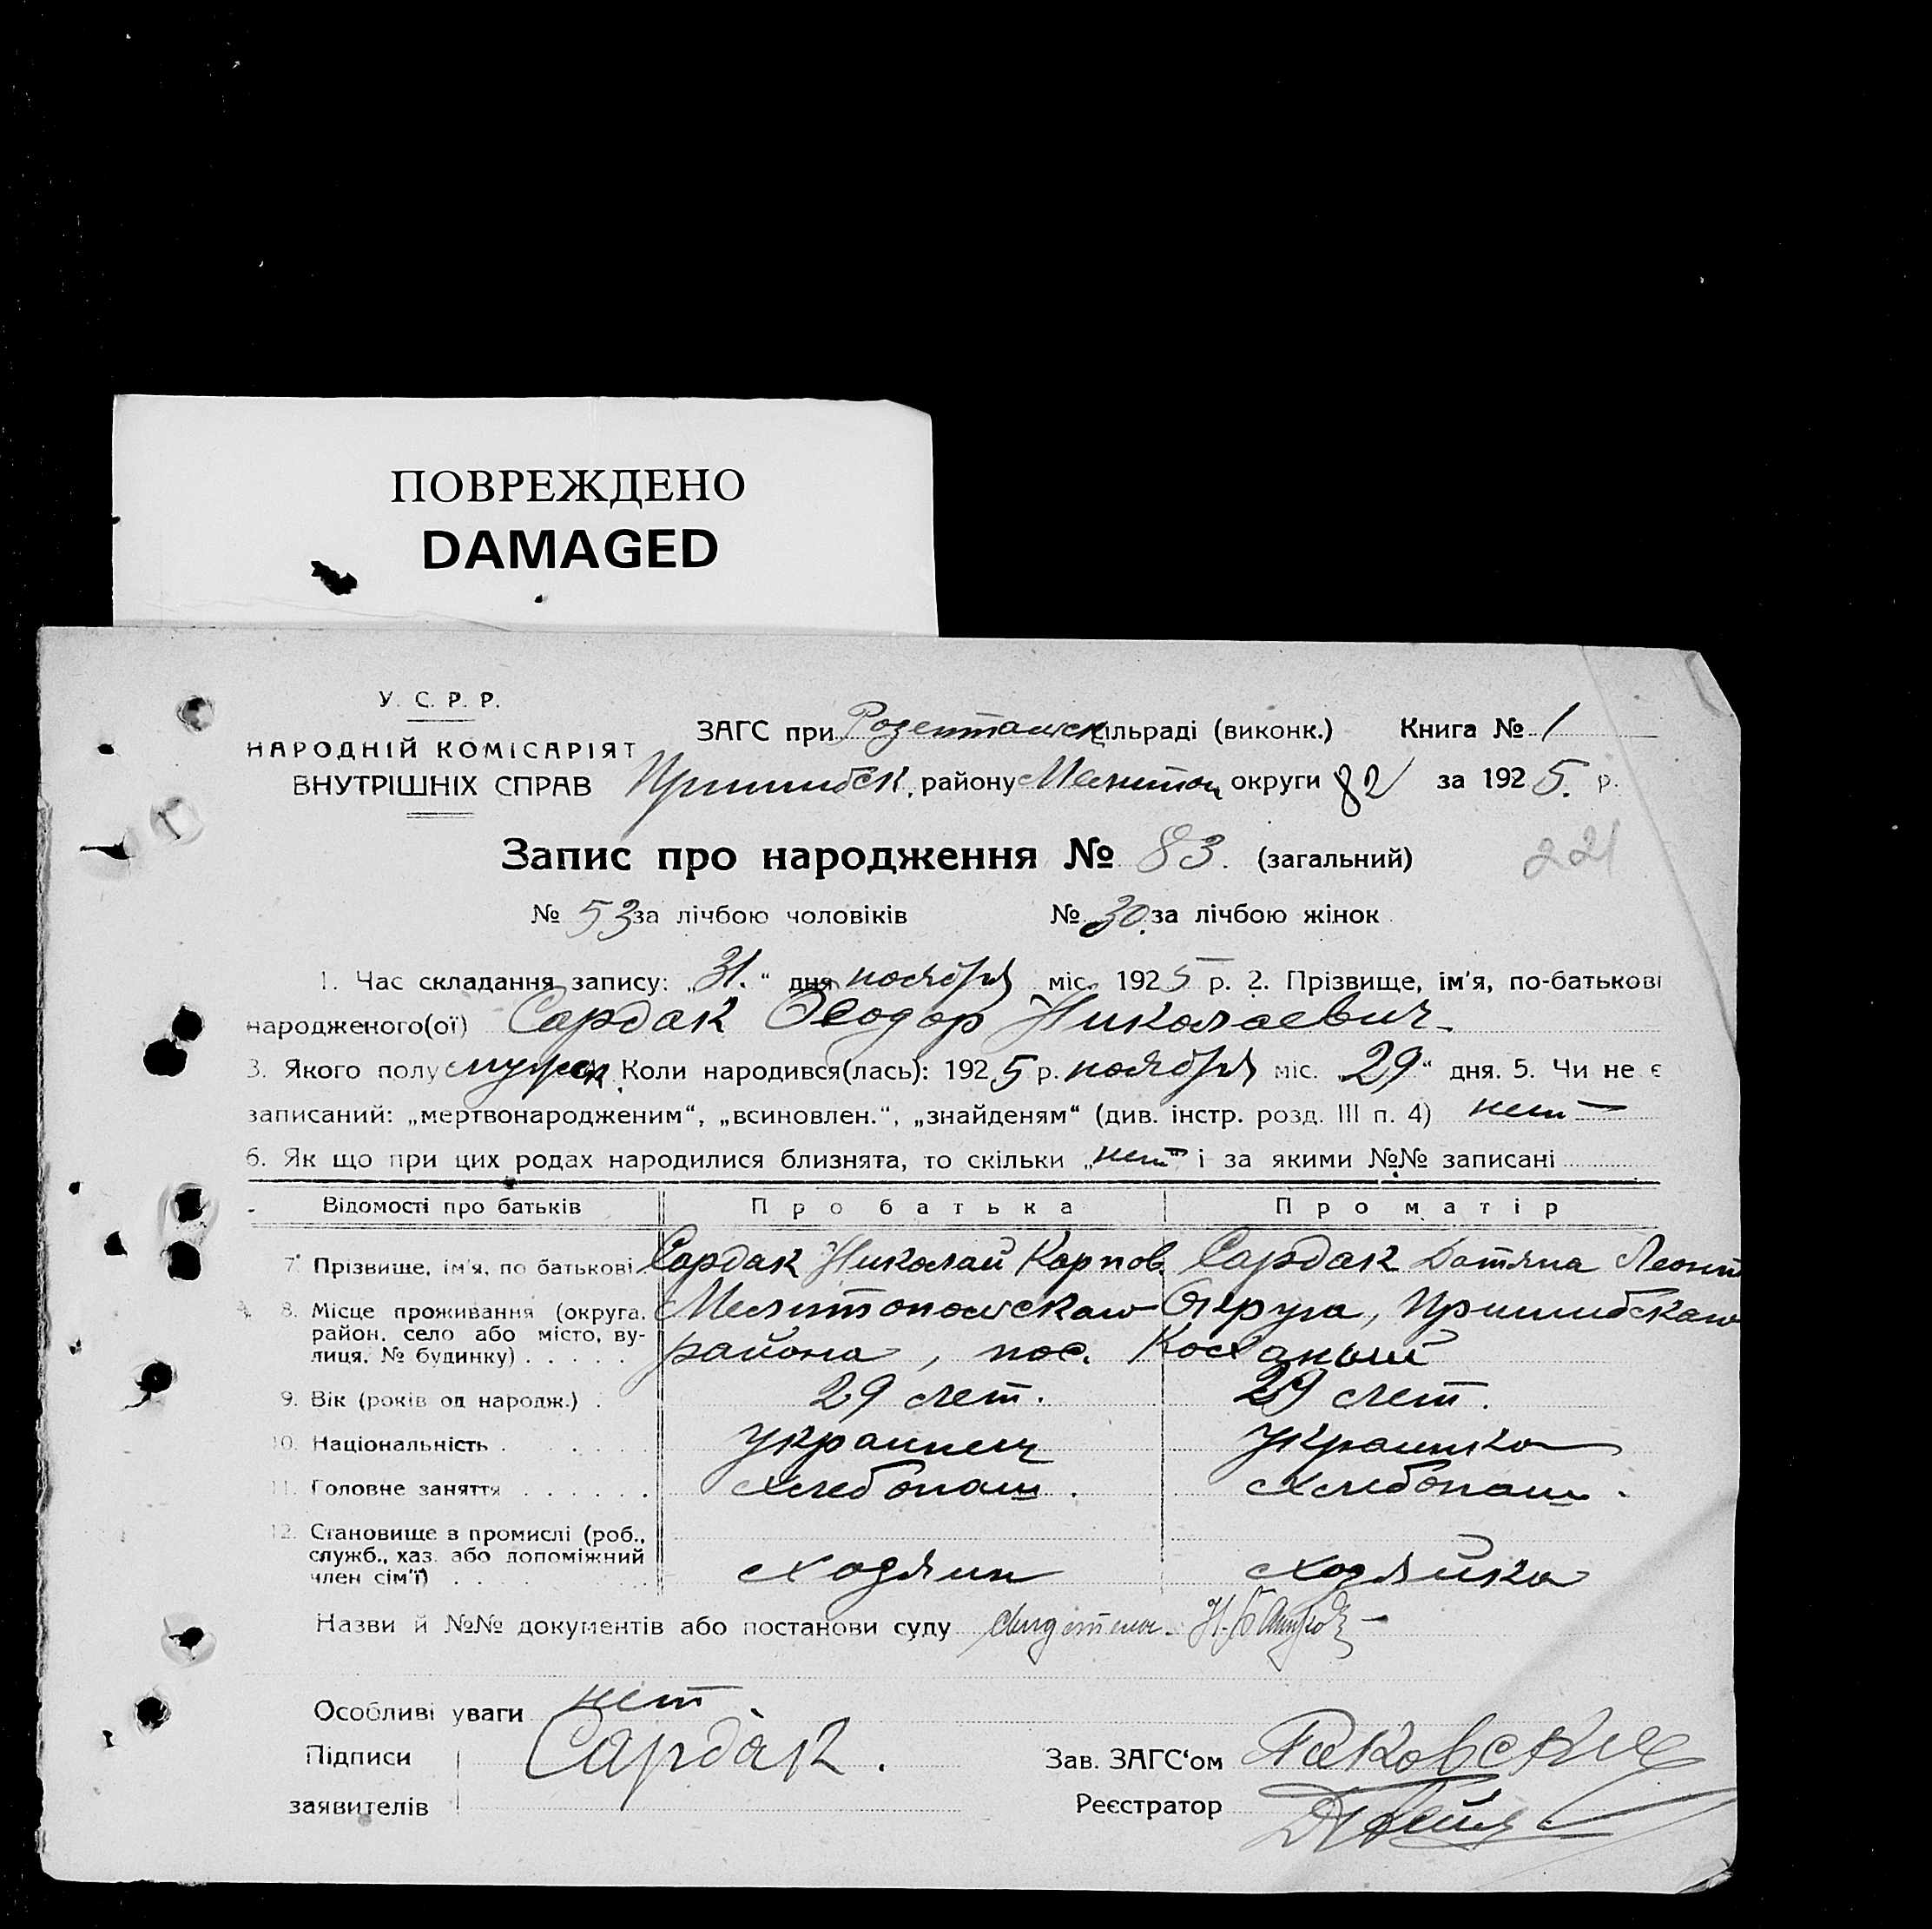 ПОВРЕЖДЕНО
DAMAGED
У. С. Р. Р.
НАРОДНІЙ КОМІСАРІЯТ
ВНУТРІШНІХ СПРАВ
ЗАГС при Розентальск сільраді (виконк.) Книга № 1
Пришибск. району Мелитоп округи 82 за 1925. р.
Запис про народження № 83. (загальний)
221
№ 53 за лічбою чоловіків № 30. за лічбою жінок
1. Час складання запису: „31.“ дня ноября міс. 1925 р. 2. Прізвище, ім'я, по-батькові
народженого(ої) Сардак Феодор Николаевич.
3. Якого полу мужск. Коли народився(лась): 1925 р. ноября міс. 29“ дня. 5. Чи не є
записаний: „мертвонародженим“, „всиновлен.“, „знайденям“ (див. інстр. розд. III п. 4) нет
6. Як що при цих родах народилися близнята, то скільки „нет“ і за якими №№ записані
Відомості про батьків Про батька Про матір
7. Прізвище, ім'я, по батькові Сардак Николай Карпов. Сардак Татяна Леонт
8. Місце проживання (округа, район, село або місто, вулиця, № будинку) Мелитопольскаго Округа, Пришибскаго
района, пос.
9. Вік (років од народж.) 29 лет. 29 лет.
10. Національність украинец украинка
11. Головне заняття хлебопаш. хлебопаш.
12. Становище в промислі (роб., служб., хаз. або допоміжний член сім'ї) хозяин хозяйка
Назви й №№ документів або постанови суду
Особливі уваги нет
Підписи Сардак. Зав. ЗАГС'ом Раковский
заявителів Реєстратор